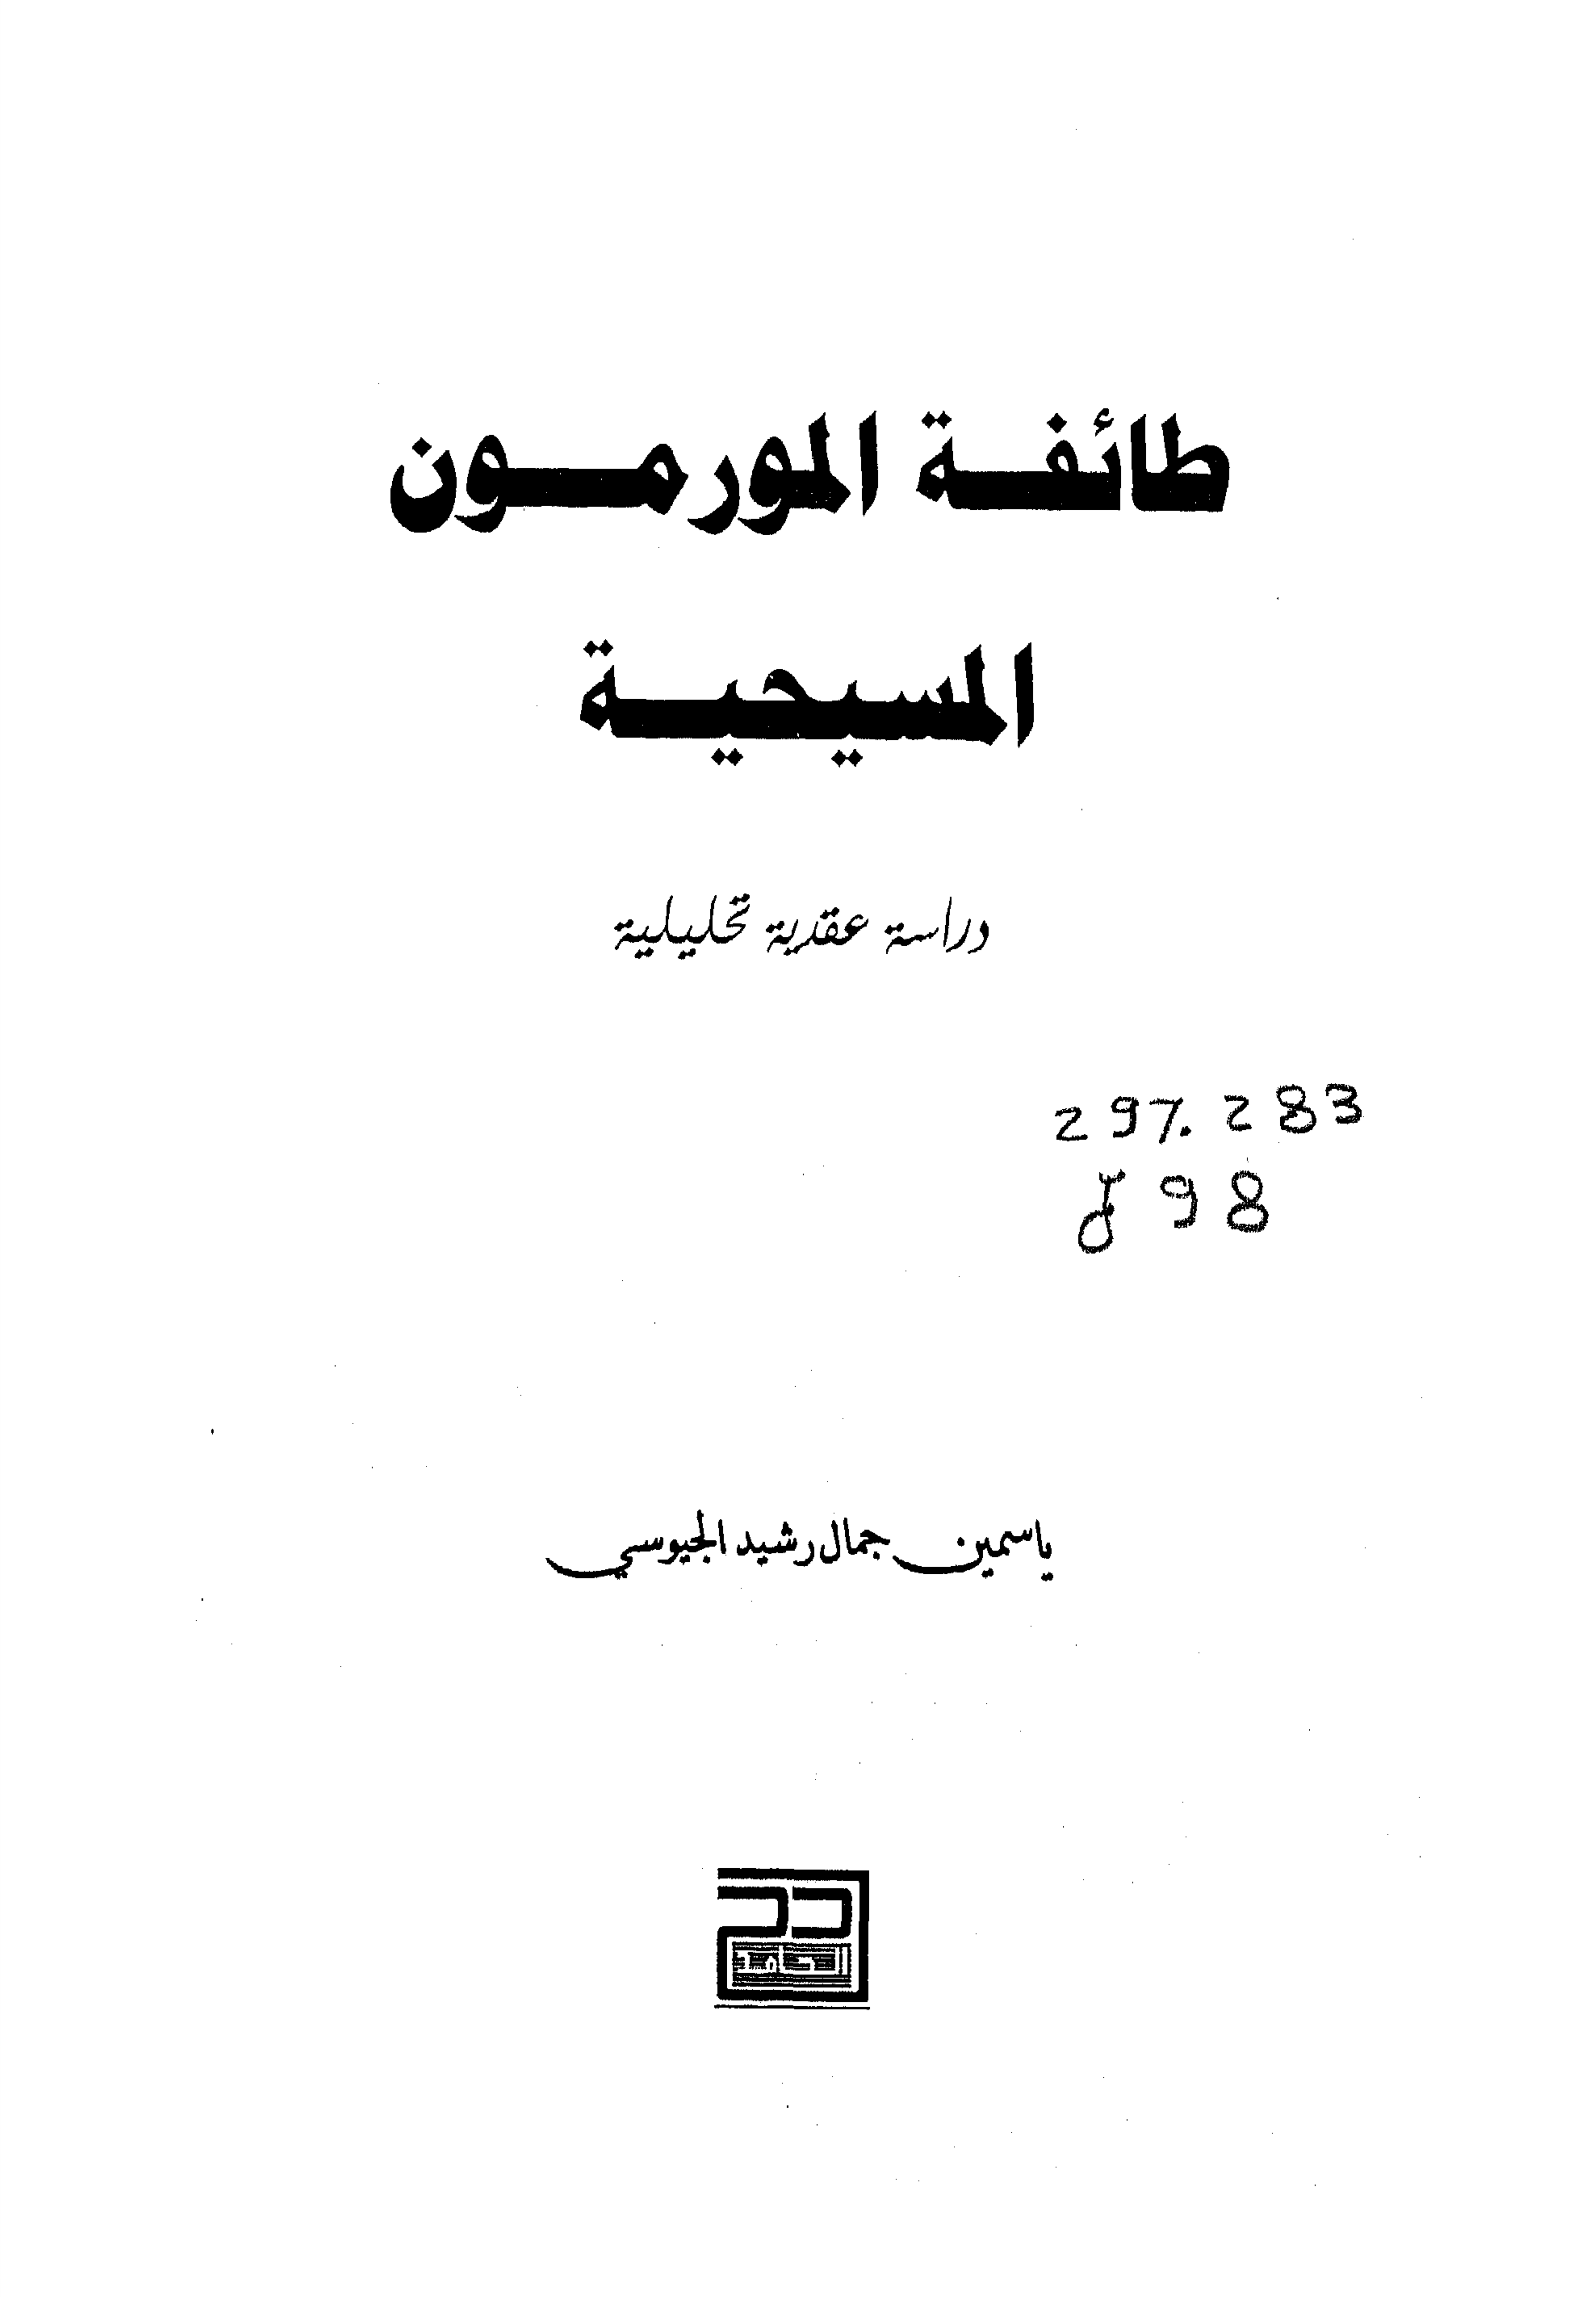 طائفة المورمون
المسيحية
دراسة عقدية تحليلية
297.283
J98
ياسمين جمال رشيد الجيوسي
الحامد